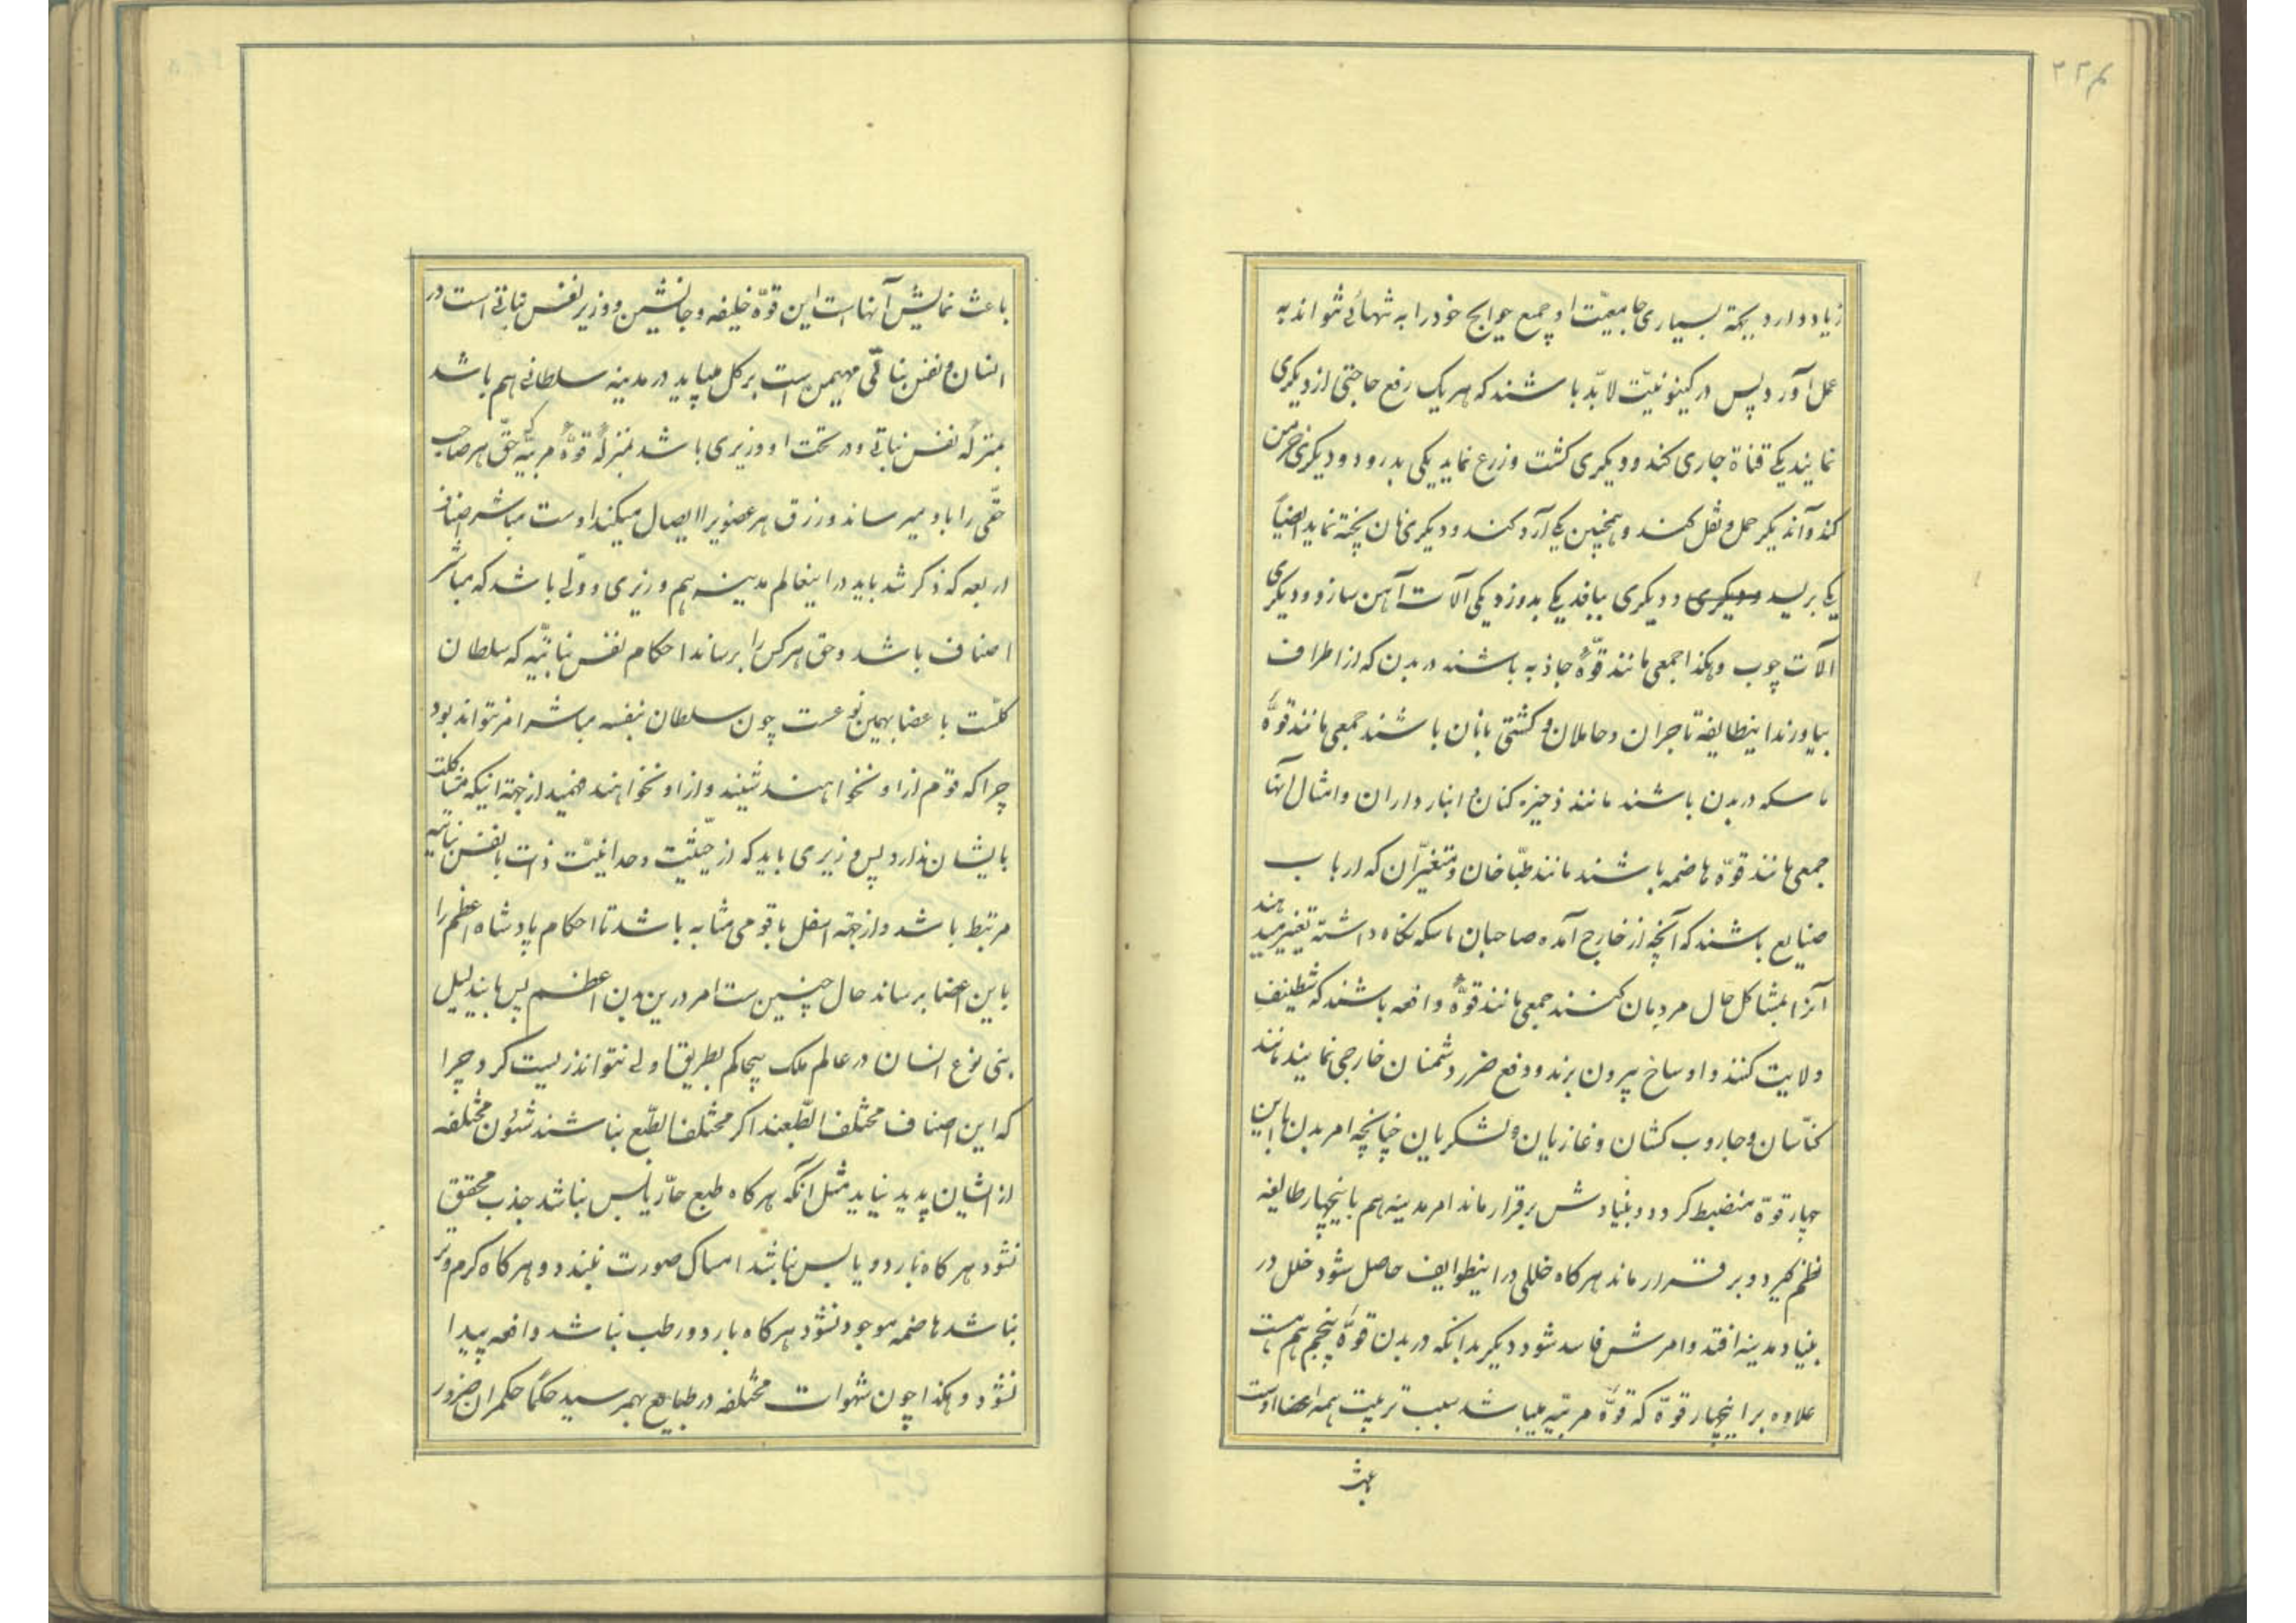 ۲۲۴
زیاد دارد بجهة بسیاری جامعیّت او جمع حوایج خود را به تنهائی نتواند به
عمل آورد پس در کینونیّت لابدّ باشند که هر یک رفع حاجتی از دیکری
نمایند یکی قناة جاری کند و دیکری کشت و زرع نماید یکی بدرود و دیکری خرمن
کند و آندیکر حمل و نقل کند و همچنین یکی آرد کند و دیکری نان پخته نماید ایضاً
یکی بریسد و دیکری ببافد یکی بدوزد یکی آلات آهن سازد و دیکری
آلات چوب و هکذا جمعی مانند قوّهٔ جاذبه باشند در بدن که از اطراف
بیاورند اینطایفه تاجران و حاملان و کشتی بانان باشند جمعی مانند قوّهٔ
ماسکه در بدن باشند مانند ذخیره کنان و انبار داران و امثال آنها
جمعی مانند قوّه هاضمه باشند مانند طبّاخان و متغیّران که ارباب
صنایع باشند که آنچه از خارج آمده صاحبان ماسکه نکاه داشته تغییر میدهند
آنرا بمشاکل حال مردمان کنند جمعی مانند قوّهٔ دافعه باشند که تنظیف
ولایت کنند و اوساخ بیرون برند و دفع ضرر دشمنان خارجی نمایند مانند
کنّاسان و جاروب کشان و غازیان و لشکریان چنانچه امر بدن با این
چهار قوّة منضبط کردد و بنیادش برقرار ماند امر مدینه هم باینچهار طایفه
نظم کیرد و برقرار ماند هرکاه خللی در اینطوایف حاصل شود خلل در
بنیاد مدینه افتد و امرش فاسد شود دیکر بدانکه در بدن قوّهٔ پنجم هم هست
علاوه بر اینچهار قوّة که قوّهٔ مربّیه میباشد سبب تربیت همه اعضا اوست
باعث نمایش آنها است این قوّة خلیفه و جانشین و وزیر نفس نباتی است در
انسان و نفس نباتی مهیمن است بر کل میباید در مدینه سلطانی هم باشد
بمنزلهٔ نفس نباتی و در تحت او وزیری باشد بمنزلهٔ قوّهٔ مربّیه که حقّ هر صاحب
حقّی را باو میرساند و رزق هر عضویرا ایصال میکند اوست مباشر اصناف
اربعه که ذکر شد باید در اینعالم مدینه هم وزیری و ولّی باشد که مباشر
اصناف باشد و حق هر کس را برساند احکام نفس نباتیّه که سلطان
کلّست با عضا بهمین نوعست چون سلطان بنفسه مباشر امر نتواند بود
چرا که قوم از او نخواهند شنید و از او نخواهند فهمید از جهة اینکه مشاکلت
بایشان ندارد پس وزیری باید که از حیثیّت وحدانیّت ذات با نفس نباتیّه
مرتبط باشد و از جهة اسفل با قومی مشابه باشد تا احکام پادشاه اعظم را
باین اعضا برساند حال چنین است امر درین بدن اعظم پس باین دلیل
بنی نوع انسان در عالم ملک بیحاکم بطریق اولی نتواند زیست کرد چرا
که این اصناف مختلف الطّبعند اکر مختلف الطّبع نباشند شئون مختلفه
از ایشان پدید نیاید مثل آنکه هرکاه طبع حارّ یابس نباشد جذب محقق
نشود هرکاه بارد و یابس نباشد امساک صورت نبندد و هرکاه کرم و تر
نباشد هاضمه موجود نشود هرکاه بارد و رطب نباشد دافعه پیدا
نشود و هکذا چون شهوات مختلفه در طبایع بهمرسید حکماً حکمران ضرور